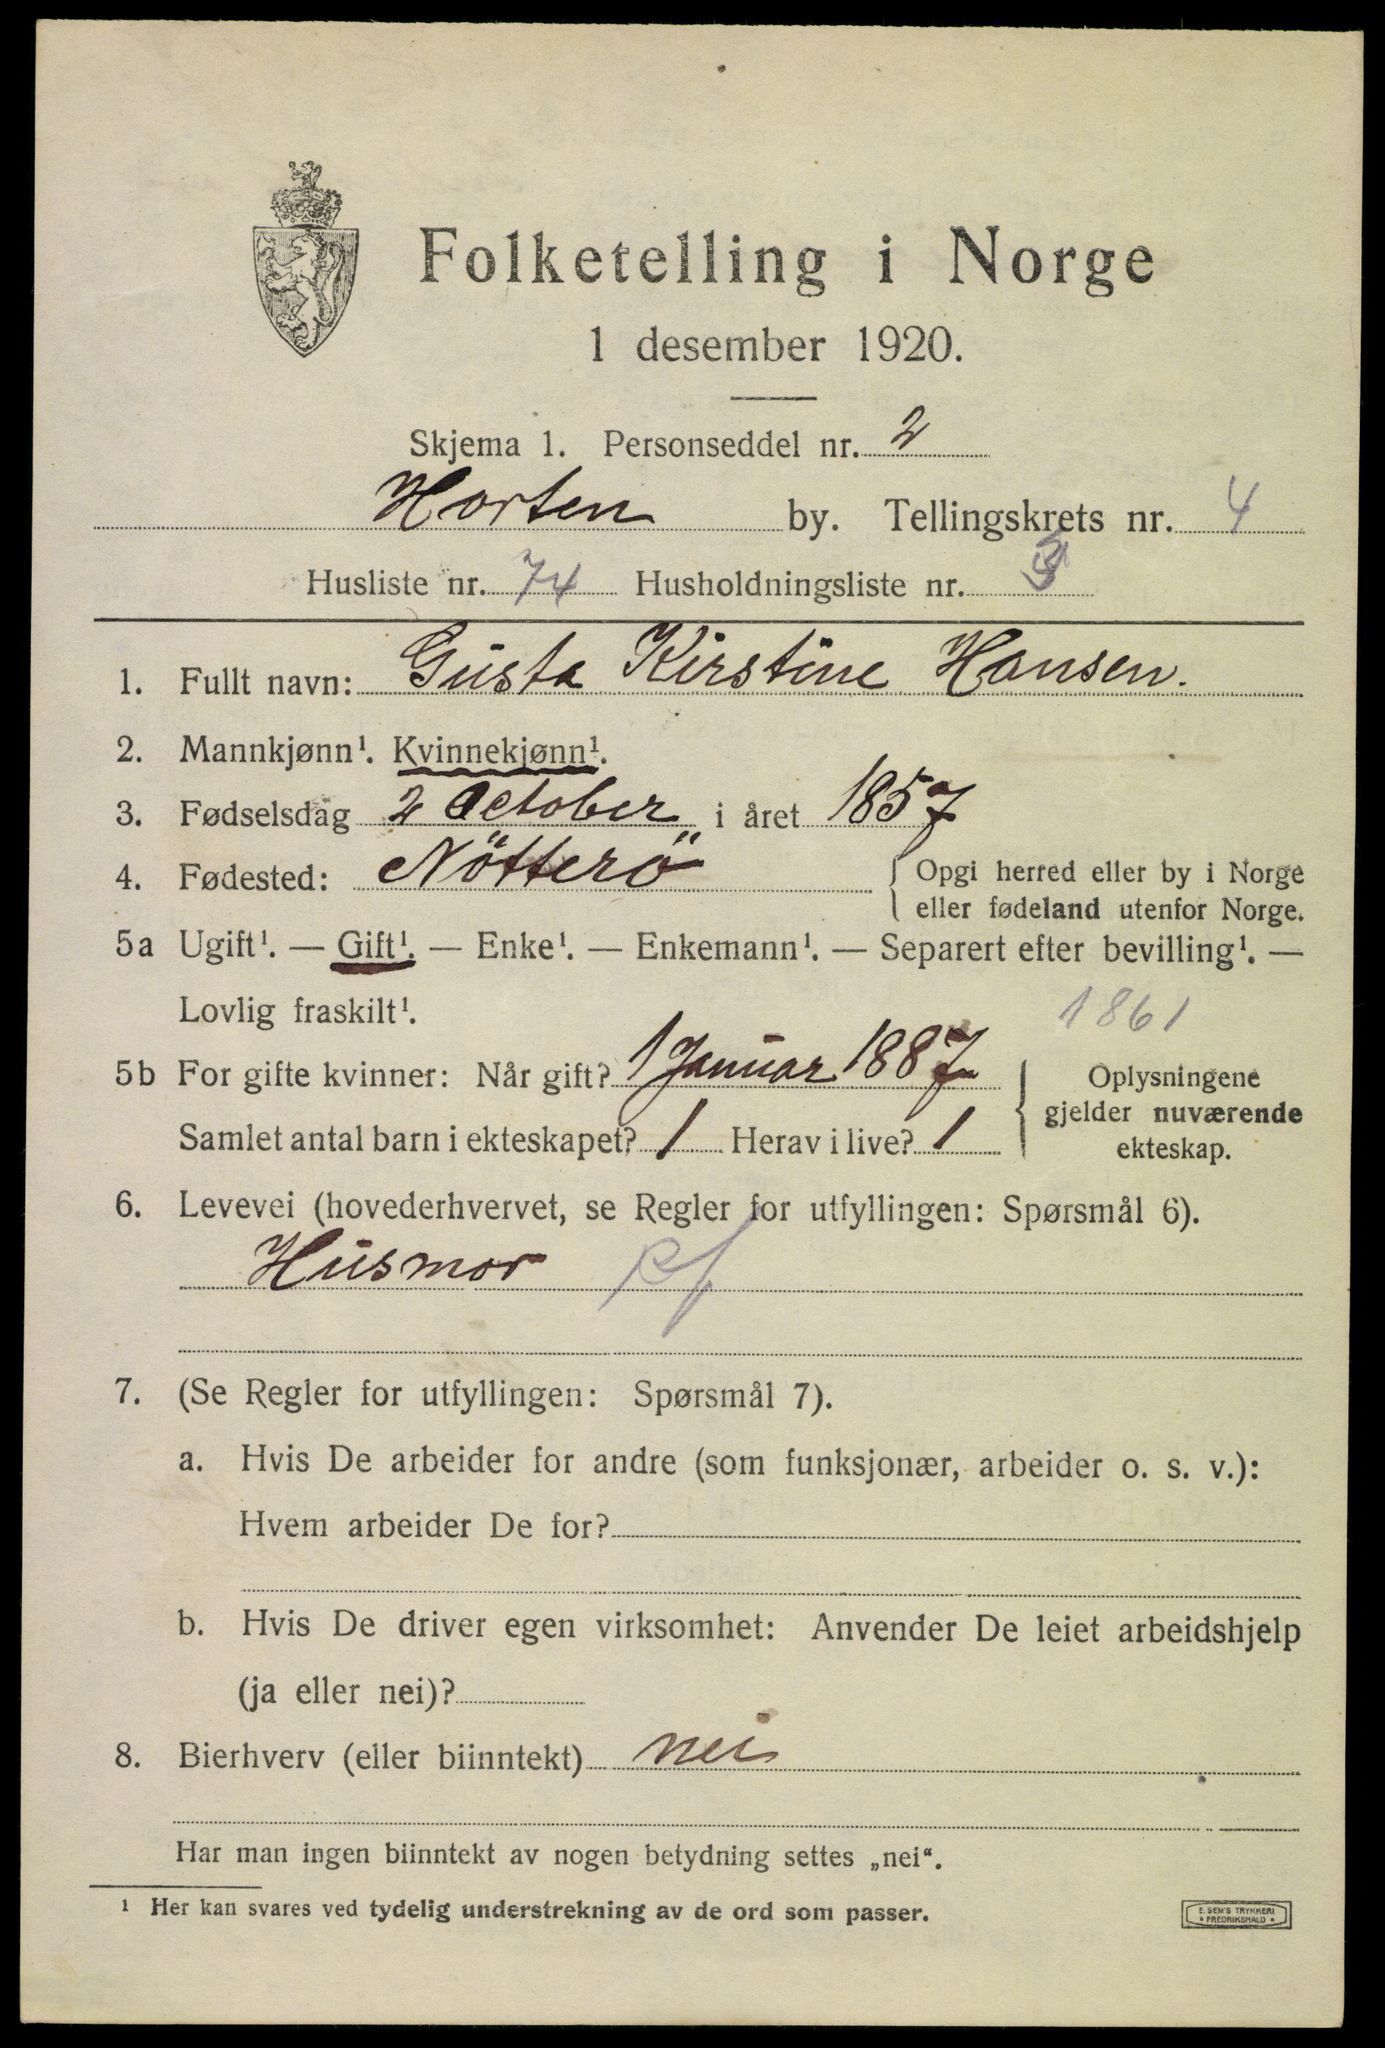 Folketelling i Norge
1 desember 1920.
Skjema 1. Personseddel nr. 2
Horten by. Tellingskrets nr. 4
Husliste nr. 74 Husholdningsliste nr.
1. Fullt navn: Gusta Kirstine Hansen.
2. Mannkjønn¹. Kvinnekjønn¹.
3. Fødselsdag 2 October i året 1857
4. Fødested: Nötterö { Opgi herred eller by i Norge
eller fødeland utenfor Norge.
5a Ugift¹. — Gift¹. — Enke¹. — Enkemann¹. — Separert efter bevilling¹. —
Lovlig fraskilt¹.
1861
5b For gifte kvinner: Når gift? 1 Januar 1887
Samlet antal barn i ekteskapet? 1 Herav i live? 1
Oplysningene
gjelder nuværende
ekteskap.
6. Levevei (hovederhvervet, se Regler for utfyllingen: Spørsmål 6).
Husmor
7. (Se Regler for utfyllingen: Spørsmål 7).
a. Hvis De arbeider for andre (som funksjonær, arbeider o. s. v.):
Hvem arbeider De for?
b. Hvis De driver egen virksomhet: Anvender De leiet arbeidshjelp
(ja eller nei)?
8. Bierhverv (eller biinntekt) nei
Har man ingen biinntekt av nogen betydning settes „nei“.
¹ Her kan svares ved tydelig understrekning av de ord som passer.
E. SEM'S TRYKKERI
• FREDRIKSHALD •